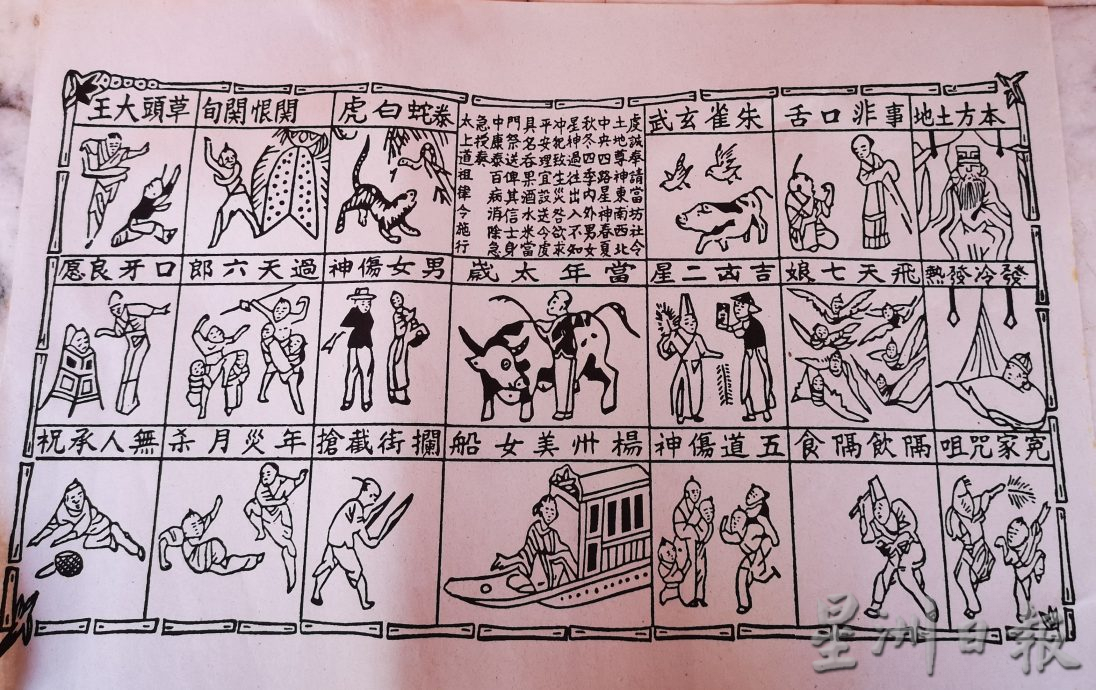 本方土地
事非口舌
朱雀玄武
虔誠奉請當坊社令
土地尊神東南西北
中央四路星神春夏
秋冬四季內外男女
星神過往出入不知
冲犯致生災咎欲求
平安理宜設送今虔
具名吞果酒水米當
門祭送俾其信士身
中康泰百病消除急
急授奉
太上道祖律令施行
泰蛇白虎
関恨関旬
草頭大王
發冷發熱
飛天七娘
吉凶二星
當年太歲
男女傷神
過天六郎
口牙良愿
冤家咒咀
隔飲隔食
五道傷神
楊州美女船
攔街截搶
年災月杀
無人承祝
星洲日報